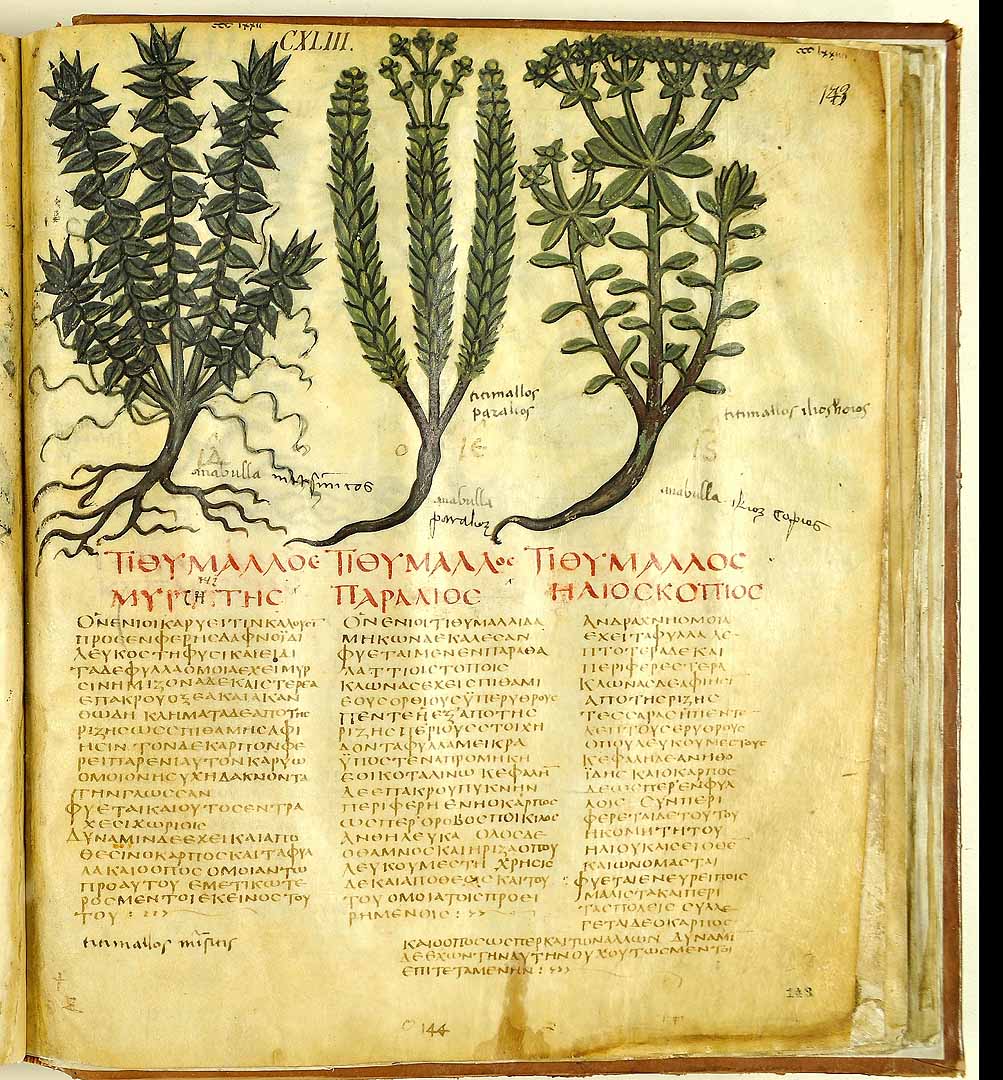 CXLIII.
148
titimallos
paralios
titimallos ilioskopios
ΙΔ
ΙΕ
ΙϚ
anabulla
anabulla
paralioz
anabulla
ΤΙΘΥΜΑΛΛΟϹ ΤΙΘΥΜΑΛΛΟϹ ΤΙΘΥΜΑΛΛΟϹ
ΜΥΡϹΙΤΗϹ ΠΑΡΑΛΙΟϹ ΗΛΙΟϹΚΟΠΙΟϹ
ΟΝΕΝΙΟΙΚΑΡΥΕΙΤΙΝΚΑΛΟΥϹΙ
ΠΡΟϹΕΝΦΕΡΗϹΔΑΦΝΟΙΔΙ
ΛΕΥΚΟϹΤΗΦΥϹΙΚΑΙΕΙΔΙ
ΤΑΔΕΦΥΛΛΑΟΜΟΙΑΕΧΕΙΜΥΡ
ϹΙΝΗΜΙΖΟΝΑΔΕΚΑΙϹΤΕΡΕΑ
ΕΠΑΚΡΟΥΟΞΕΑΚΑΙΑΚΑΝ
ΘΩΔΗ ΚΛΗΜΑΤΑΔΕΑΠΟΤΗϹ
ΡΙΖΗϹΩϹϹΠΙΘΑΜΗϹΑΦΙ
ΗϹΙΝ ΤΟΝΔΕΚΑΡΠΟΝΦΕ
ΡΕΙΠΑΡΕΝΙΑΥΤΟΝΚΑΡΥΩ
ΟΜΟΙΟΝΗϹΥΧΗΔΑΚΝΟΝΤΑ
ΤΗΝΓΛΩϹϹΑΝ
ΦΥΕΤΑΙΚΑΙΟΥΤΟϹΕΝΤΡΑ
ΧΕϹΙΧΩΡΙΟΙϹ
ΔΥΝΑΜΙΝΔΕΕΧΕΙΚΑΙΑΠΟ
ΘΕϹΙΝΟΚΑΡΠΟϹΚΑΙΤΑΦΥΛ
ΛΑΚΑΙΟΟΠΟϹΟΜΟΙΑΝΤΩ
ΠΡΟΑΥΤΟΥ ΕΜΕΤΙΚΩΤΕ
ΡΟϹΜΕΝΤΟΙΕΚΕΙΝΟϹΤΟΥ
ΤΟΥ:
titimallos
ΟΝΕΝΙΟΙΤΙΘΥΜΑΛΙΔΑ
ΜΗΚΩΝΑΕΚΑΛΕϹΑΝ
ΦΥΕΤΑΙΜΕΝΕΝΠΑΡΑΘΑ
ΛΑΤΤΙΟΙϹΤΟΠΟΙϹ
ΚΛΩΝΑϹΕΧΕΙϹΠΙΘΑΜΙ
ΕΟΥϹΟΡΘΙΟΥϹΥΠΕΡΥΘΡΟΥϹ
ΠΕΝΤΕΗΕΞΑΠΟΤΗϹ
ΡΙΖΗϹΠΕΡΙΟΥϹϹΤΟΙΧΗ
ΔΟΝΤΑΦΥΛΛΑΜΕΙΚΡΑ
ΥΠΟϹΤΕΝΑΠΡΟΜΗΚΗ
ΕΟΙΚΟΤΑΛΙΝΩ ΚΕΦΑΛΗ
ΔΕΕΠΑΚΡΟΥΠΥΚΝΗΝ
ΠΕΡΙΦΕΡΗ ΕΝΗΟΚΑΡΠΟϹ
ΩϹΠΕΡΟΡΟΒΟϹΠΟΙΚΙΛΟϹ
ΑΝΘΗΛΕΥΚΑ ΟΛΟϹΔΕ
ΟΘΑΜΝΟϹΚΑΙΗΡΙΖΑΟΠΟΥ
ΛΕΥΚΟΥΜΕϹΤΗ ΧΡΗϹΙϹ
ΔΕΚΑΙΑΠΟΘΕϹΙϹΚΑΙΤΟΥ
ΤΟΥΟΜΟΙΑΤΟΙϹΠΡΟΕΙ
ΡΗΜΕΝΟΙϹ:
ΑΝΔΡΑΧΝΗΟΜΟΙΑ
ΕΧΕΙΤΑΦΥΛΛΑ ΛΕ
ΠΤΟΤΕΡΑΔΕΚΑΙ
ΠΕΡΙΦΕΡΕϹΤΕΡΑ
ΚΛΩΝΑϹΔΕΑΦΙΗϹΙ
ΑΠΟΤΗϹΡΙΖΗϹ
ΤΕϹϹΑΡΑϹΗΠΕΝΤΕ
ΛΕΠΤΟΥϹΕΡΥΘΡΟΥϹ
ΟΠΟΥΛΕΥΚΟΥΜΕϹΤΟΥϹ
ΚΕΦΑΛΗΔΕΑΝΗΘΟ
ΙΔΗϹ ΚΑΙΟΚΑΡΠΟϹ
ΔΕΩϹΠΕΡΕΝΦΥΛ
ΛΟΙϹ ϹΥΝΠΕΡΙ
ΦΕΡΕΤΑΙΔΕΤΟΥΤΟΥ
ΗΚΟΜΗΤΗΤΟΥ
ΗΛΙΟΥΚΛΙϹΕΙΟΘΕ
ΚΑΙΩΝΟΜΑϹΤΑΙ
ΦΥΕΤΑΙΕΝΕΥΡΕΙΠΟΙϹ
ΜΑΛΙϹΤΑΚΑΙΠΕΡΙ
ΤΑϹΠΟΛΕΙϹ ϹΥΛΛΕ
ΓΕΤΑΙΔΕΟΚΑΡΠΟϹ
ΚΑΙΟΟΠΟϹΩϹΠΕΡΚΑΙΤΩΝΑΛΛΩΝ ΔΥΝΑΜΙ
ΔΕΕΧΩΝΤΗΝΑΥΤΗΝΟΥΧΟΥΤΩϹΜΕΝΤΟΙ
ΕΠΙΤΕΤΑΜΕΝΗΝ:
148
144